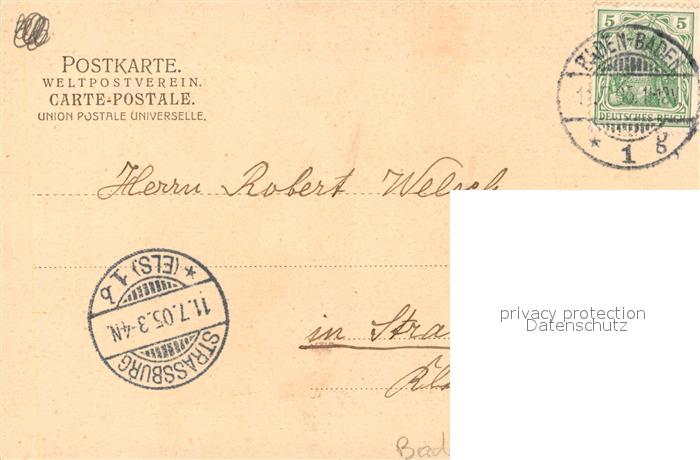 POSTKARTE.
WELTPOSTVEREIN.
CARTE-POSTALE.
UNION POSTALE UNIVERSELLE.
5 5
DEUTSCHES REICH
BADEN-BADEN
* 1 g
Herrn Robert Welsch
STRASSBURG
11.7.05.3-4N.
* (ELS) 1 b
in Stra
privacy protection
Datenschutz
Bad